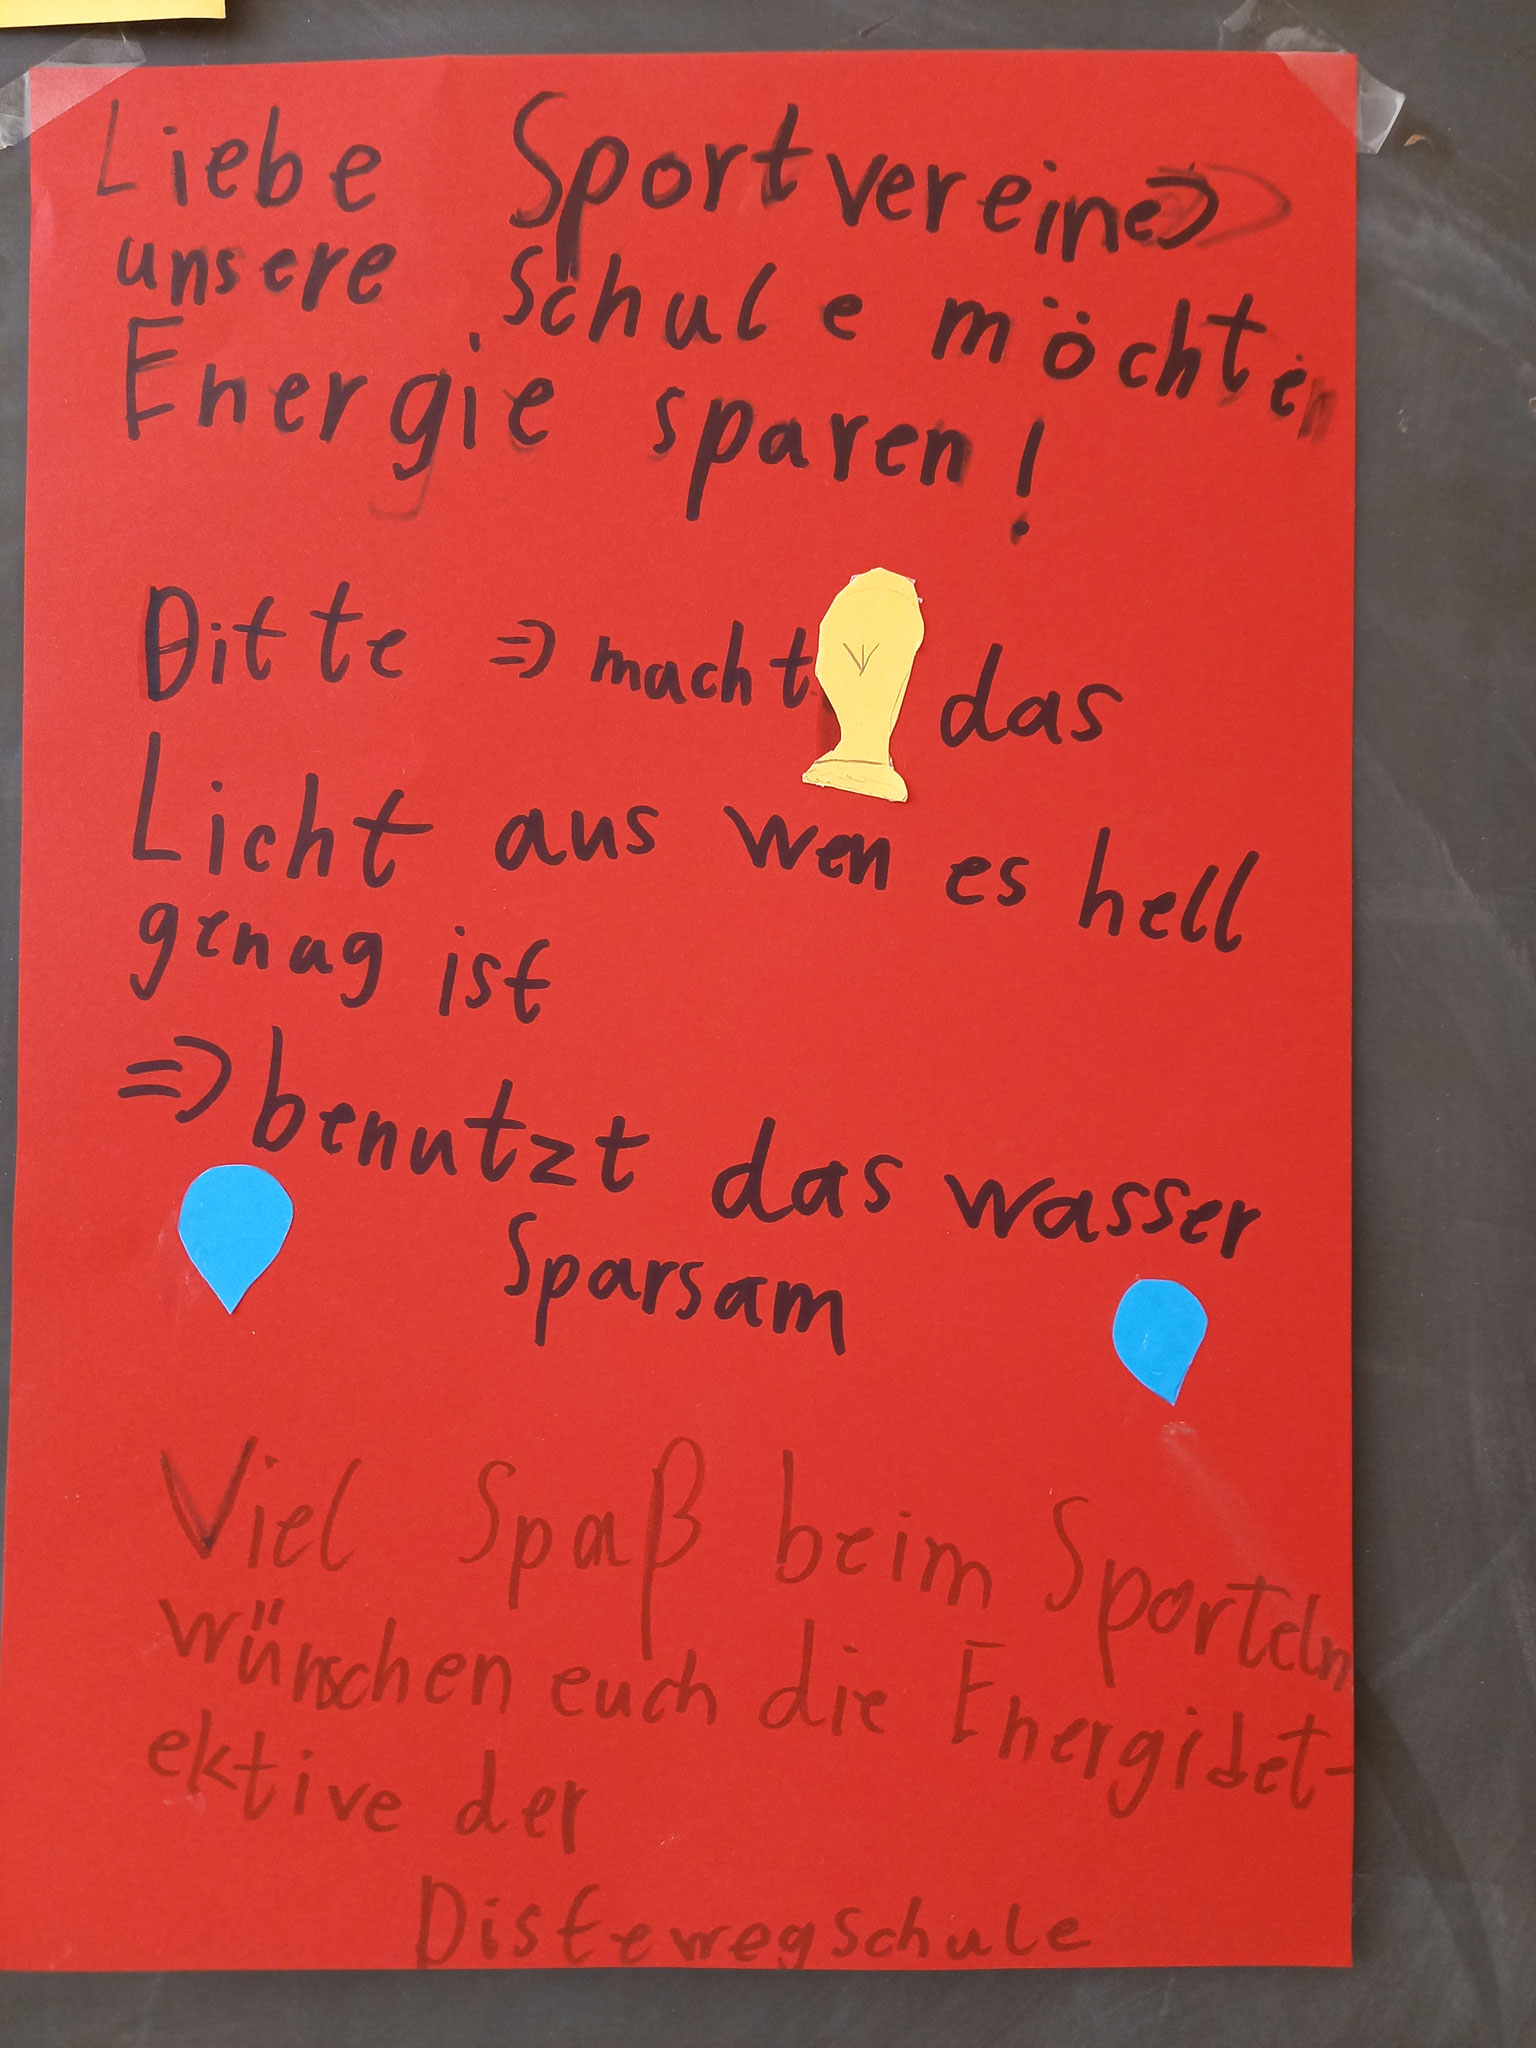 Liebe Sportvereine
unsere Schule möchten
Energie sparen!
Bitte => macht das
Licht aus wen es hell
genug ist
=> benutzt das wasser
Sparsam
Viel Spaß beim Sporteln
wünschen euch die Energidet-
ektive der
Distewegschule